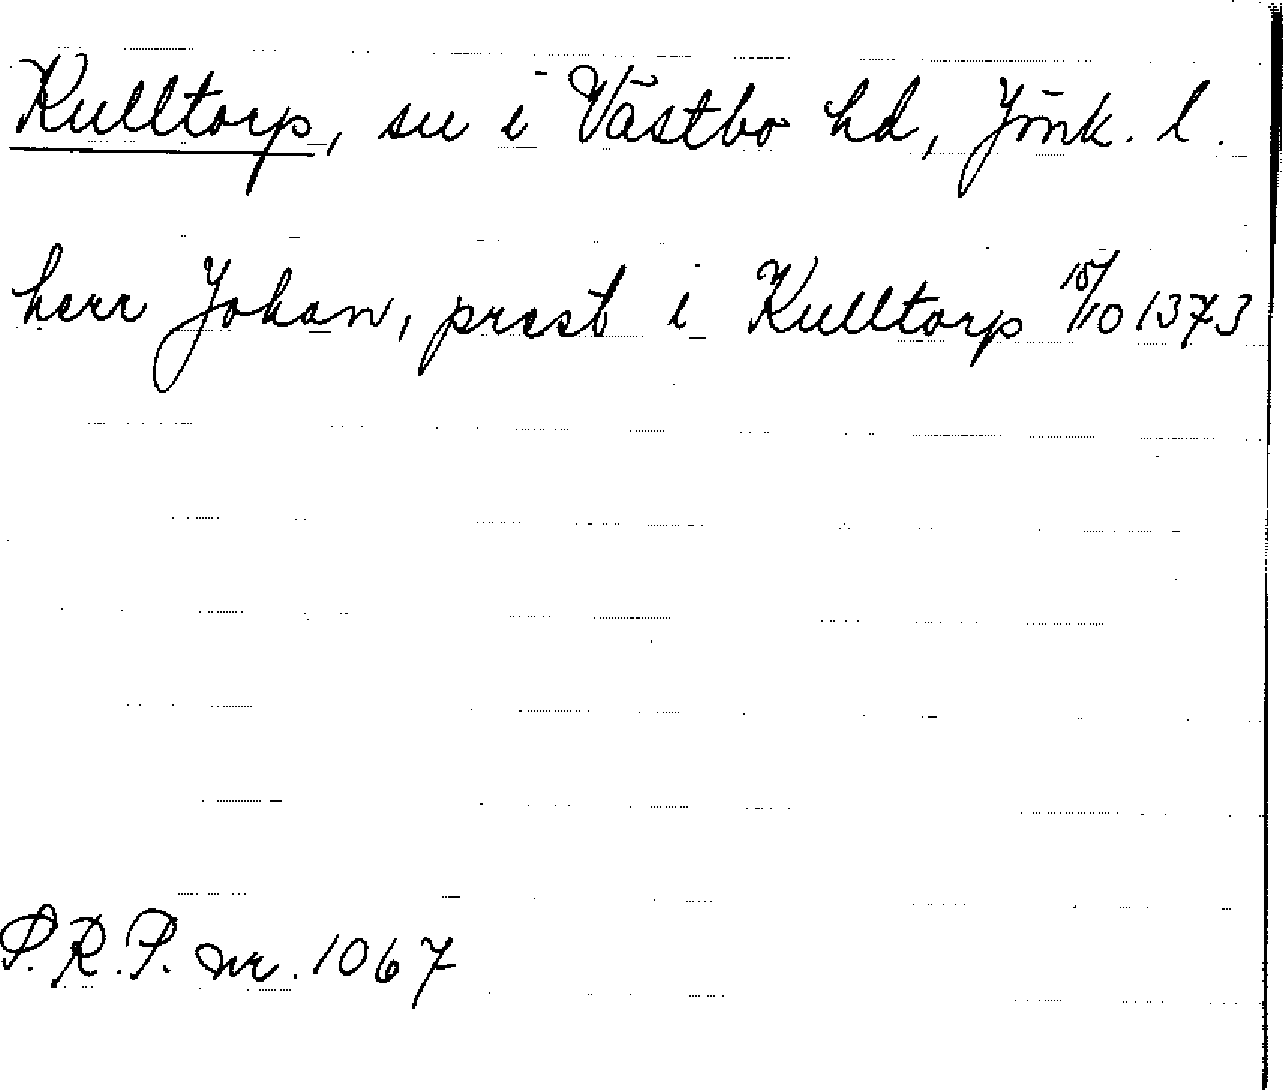 Kulltorp, sn i Västbo hd, Jönk. l.
herr Johan, prest i Kulltorp 15/10 1373
P.R.P. nr. 1067